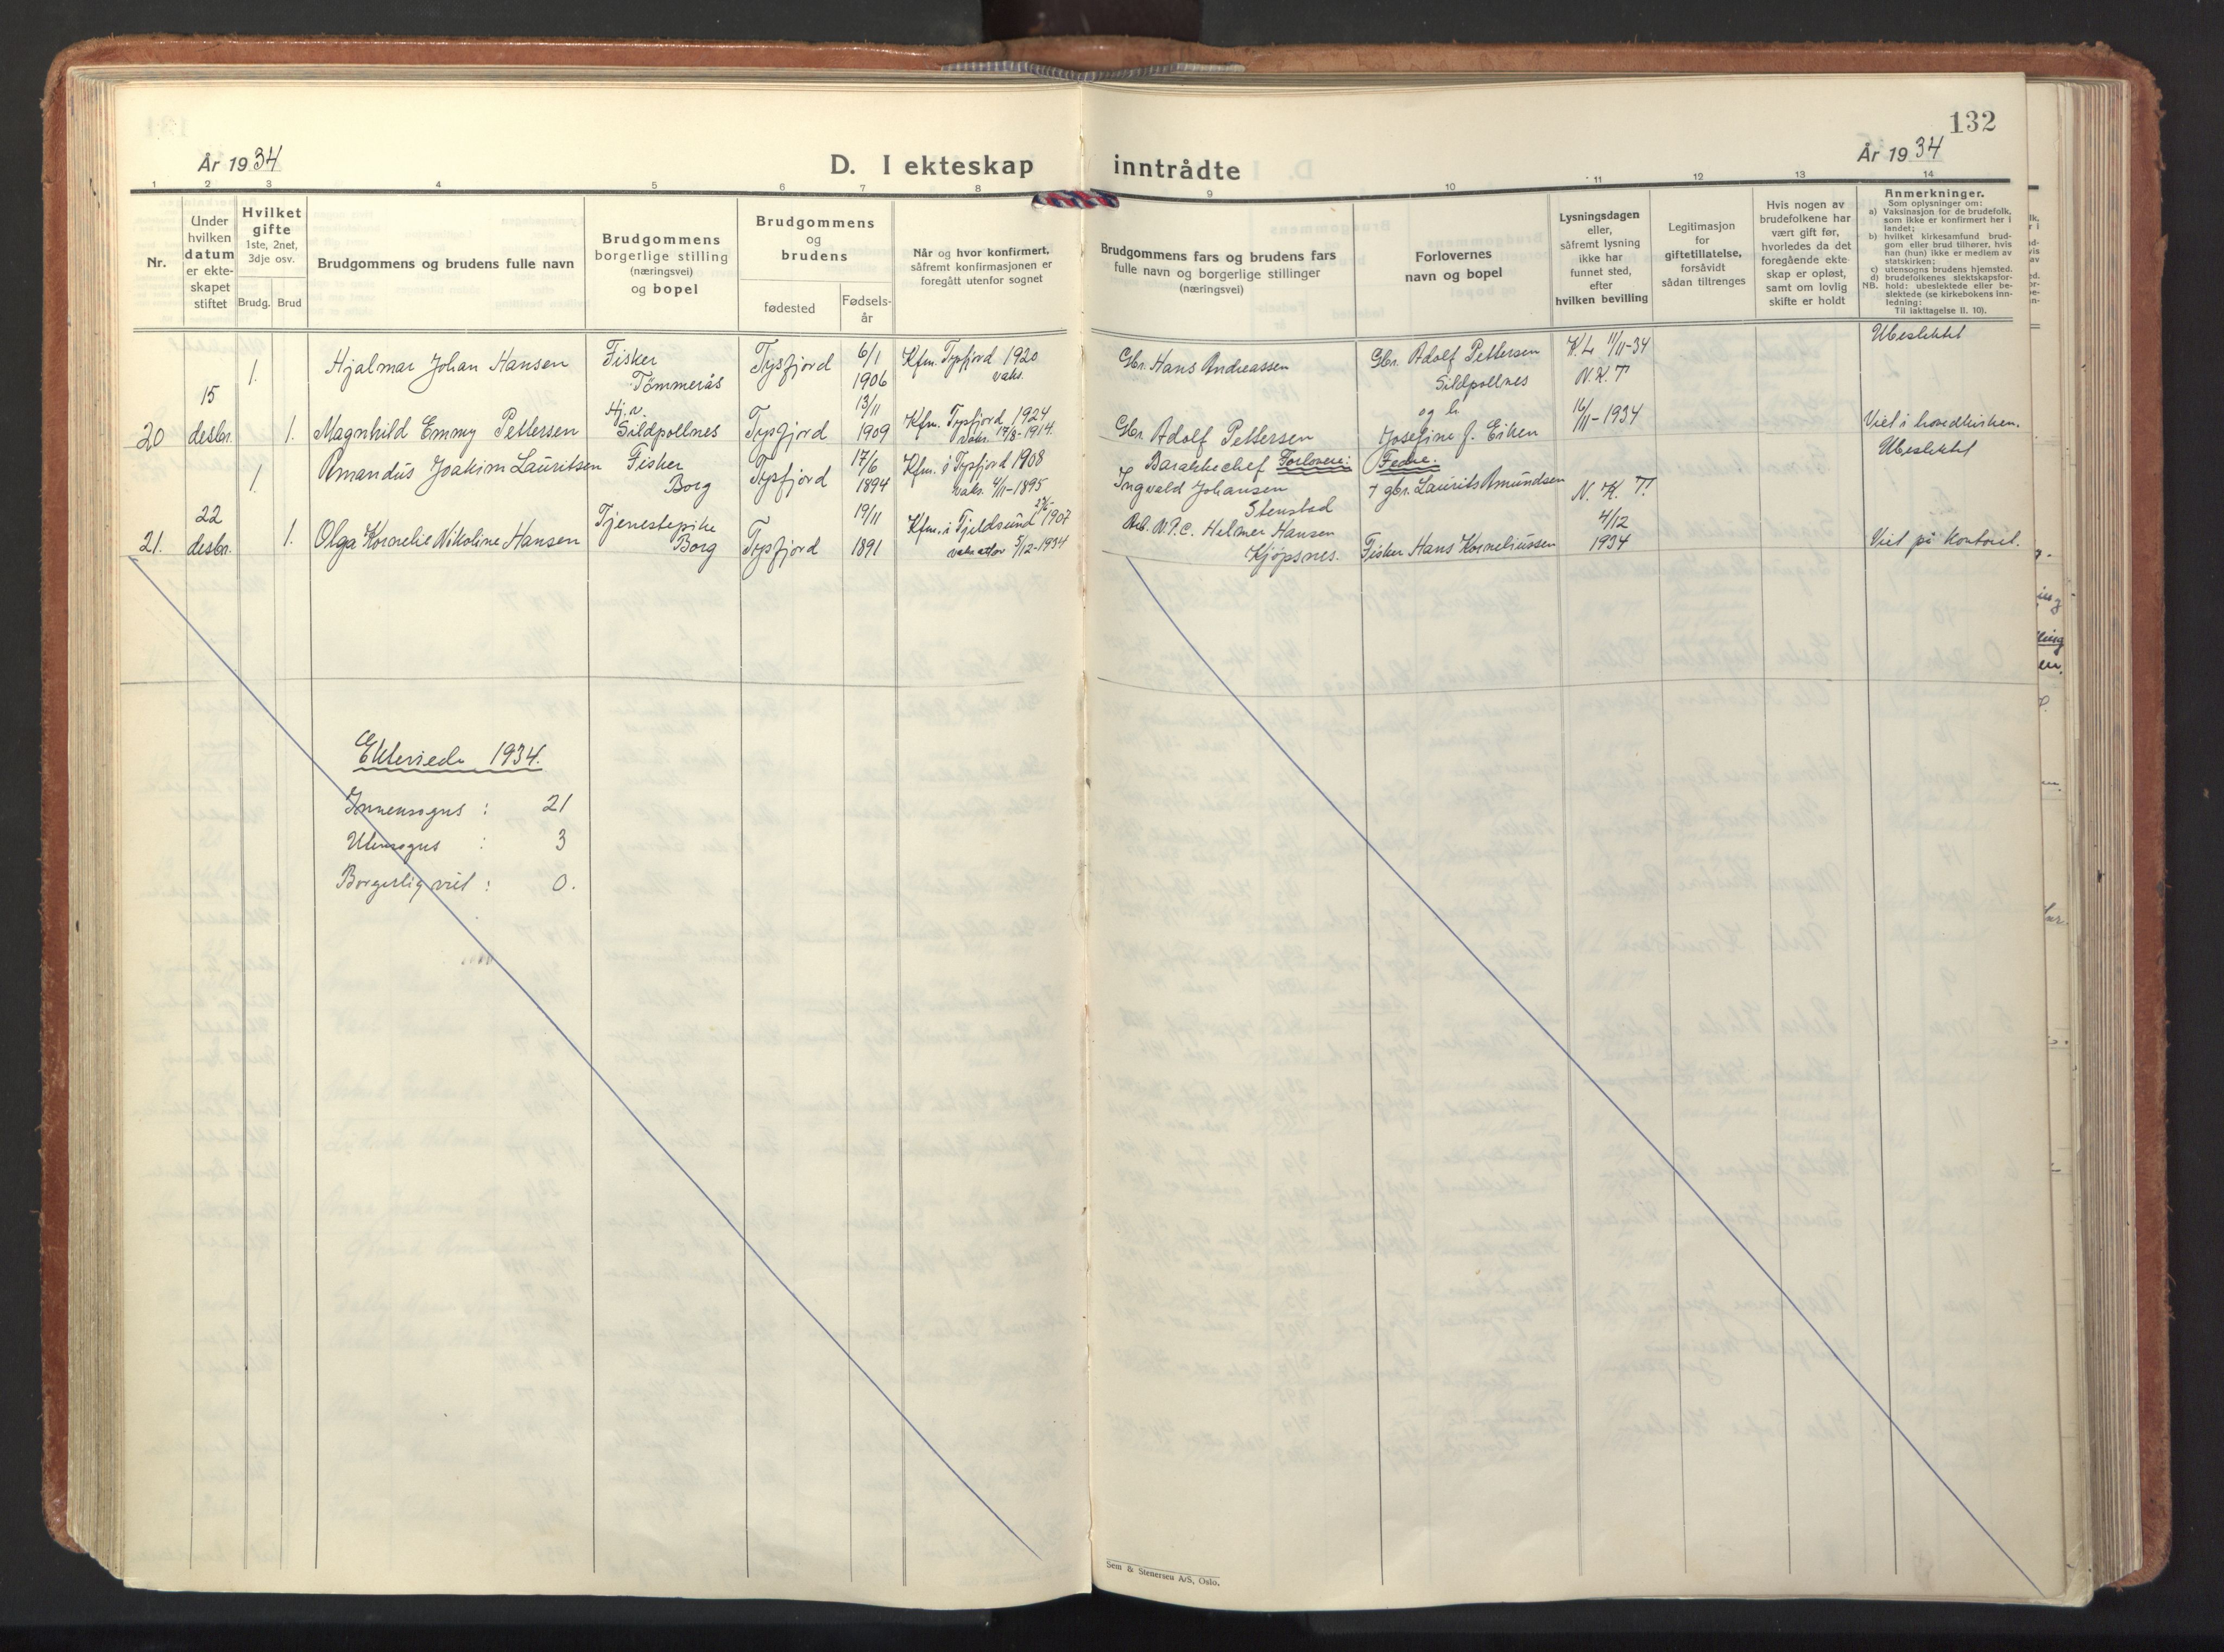 132
År 1934
D. I ekteskap inntrådte
År 1934
1 2 3 4 5 6 7 8 9 10 11 12 13 14
Nr.
Under
hvilken
datum
er ekte-
skapet
stiftet
Hvilket
gifte
1ste, 2net,
3dje osv.
Brudg. Brud
Brudgommens og brudens fulle navn
Brudgommens
borgerlige stilling
(næringsvei)
og bopel
Brudgommens
og
brudens
fødested
Fødsels-
år
Når og hvor konfirmert,
såfremt konfirmasjonen er
foregått utenfor sognet
Brudgommens fars og brudens fars
fulle navn og borgerlige stillinger
(næringsvei)
Forlovernes
navn og bopel
Lysningsdagen
eller,
såfremt lysning
ikke har
funnet sted,
efter
hvilken bevilling
Legitimasjon
for
giftetillatelse,
forsåvidt
sådan tiltrenges
Hvis nogen av
brudefolkene har
vært gift før,
hvorledes da det
foregående ekte-
skap er opløst,
samt om lovlig
skifte er holdt
Anmerkninger.
Som oplysninger om:
a) Vaksinasjon for de brudefolk,
som ikke er konfirmert her i
landet;
b) hvilket kirkesamfund brud-
gom eller brud tilhører, hvis
han (hun) ikke er medlem av
statskirken;
c) utensogns brudens hjemsted.
d) brudefolkenes slektskapsfor-
NB. hold: ubeslektede eller be-
slektede (se kirkebokens inn-
ledning:
Til iakttagelse II. 10).
20
15
desbr.
1.
Hjalmar Johan Hansen
Fisker
Tömmerås
Tysfjord
6/1
1906
Kfm. Tysfjord 1920
vaks.
Gbr. Hans Andreassen
Gbr. Adolf Pettersen
Sildpollnes
K.L. 11/11-34
N.K.T
Ubeslektet
1. Magnhild Emmy Pettersen
Hj.v.
Sildpollnes
Tysfjord
13/11
1909
Kfm. Tysfjord 1924
vaks. 17/8-1914.
Gbr. Adolf Pettersen
og h.
Josefine J. Eiken
16/11-1934
Viet i hovedkirken.
21.
22
desbr.
1.
Amandus Joakim Lauritsen
Fisker
Borg
Tysfjord
17/6
1894
Kfm. i Tysfjord 1908
vaks. 4/11-1895
Barakkechef Forlovere:
Ingvald Johansen
Stenstad
Fedre.
† gbr. Laurits Amundsen
N.K.T.
Ubeslektet
1. Olga Kornelie Nikoline Hansen
Tjenestepike
Borg
Tysfjord
19/11
1891
Kfm. i Tjeldsund 1907
vaks attv 5/12-1934
Arb. N.P.C. Helmer Hansen
Kjöpsnes.
Fisker Hans Korneliussen
4/12
1934
Viet på kontoret.
Ekteviede 1934.
Innensogns : 21
Utensogns : 3
Borgerlig viet : 0.
Sem & Stenersen A/S, Oslo.